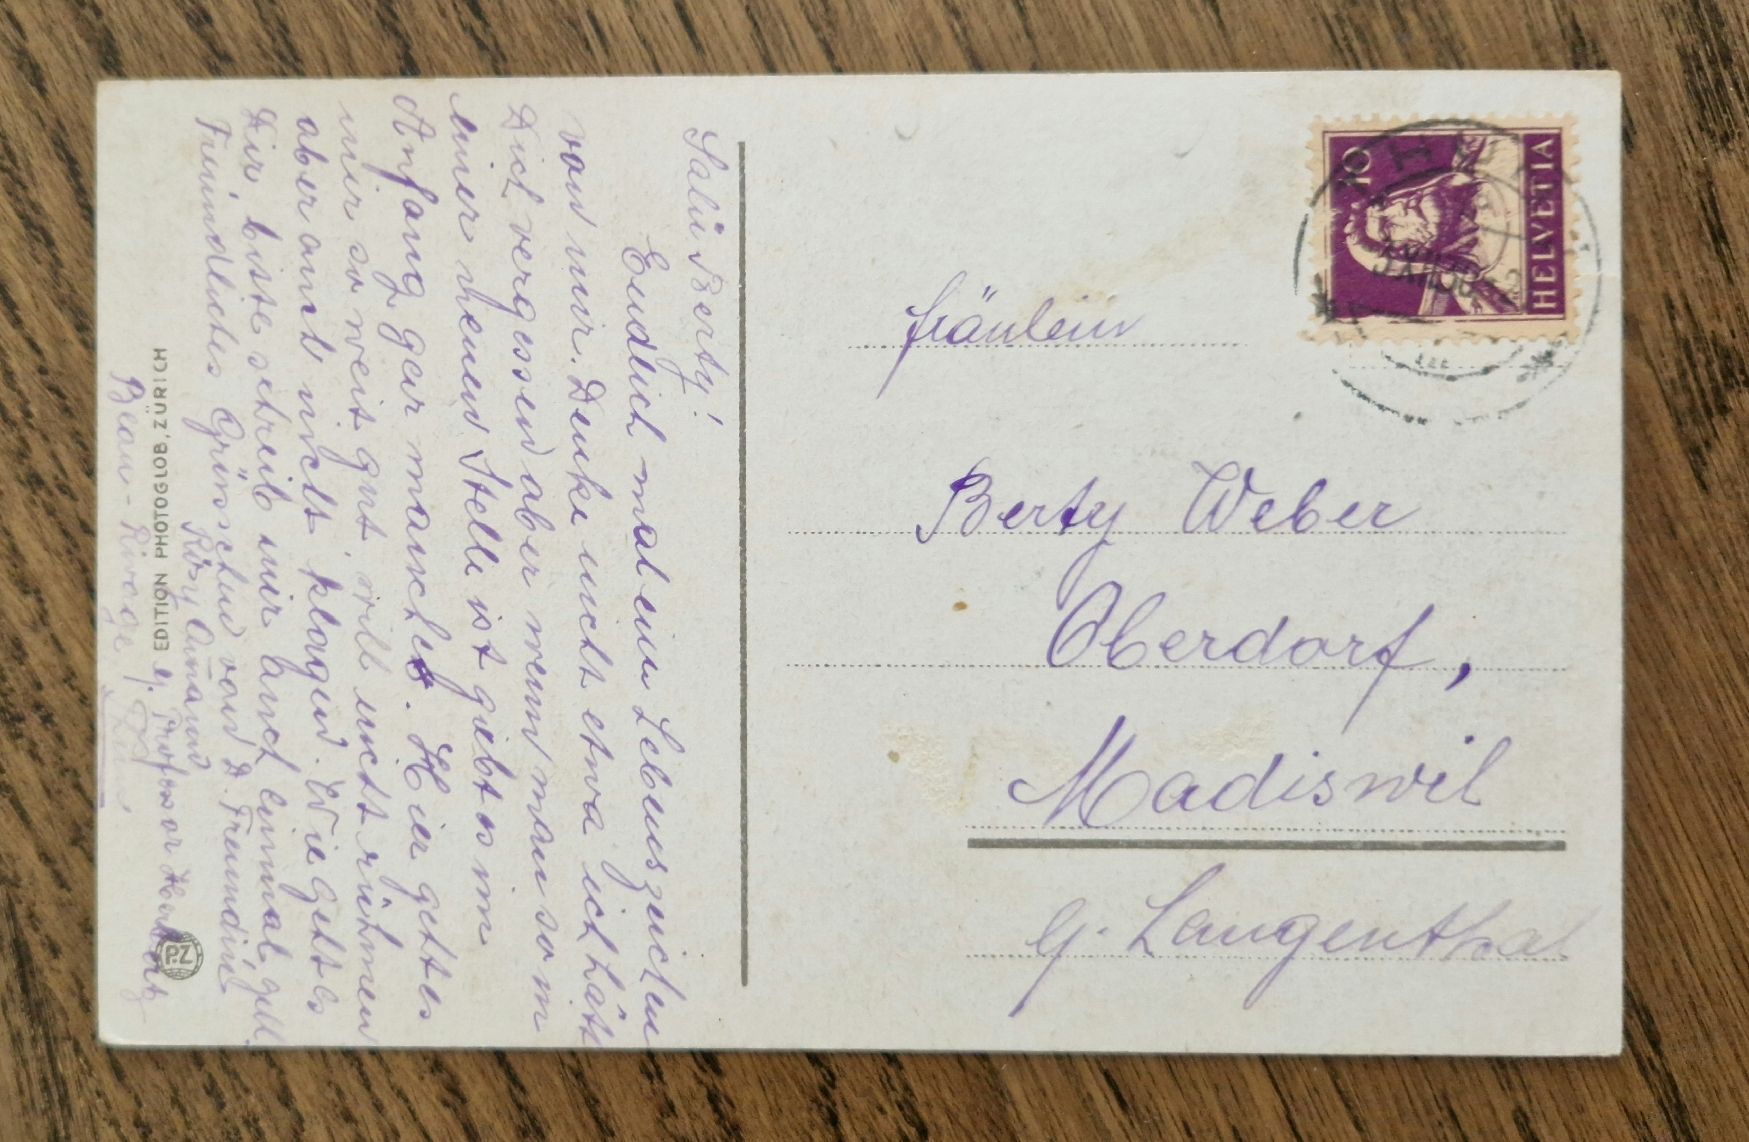 Salü Berty!
Endlich mal ein Lebenszeichen
von mir. Denke nicht etwa ich hätt
Dich vergessen aber wenn man so in
einer neuen Stelle ist giebt es im
Anfang gar manches. Hier geht es
mir so weit gut, will nicht rühmen
aber auch nicht klagen. Wie geht es
Dir, bitte schreib mir auch einmal gell.
Freundliches Grüsschen von D. Freundin
Rösy Amann
EDITION PHOTOGLOB, ZÜRICH
P.Z
Beau-Rivage
HELVETIA
10
Fräulein
Berty Weber
Oberdorf,
Madiswil
b/. Langenthal